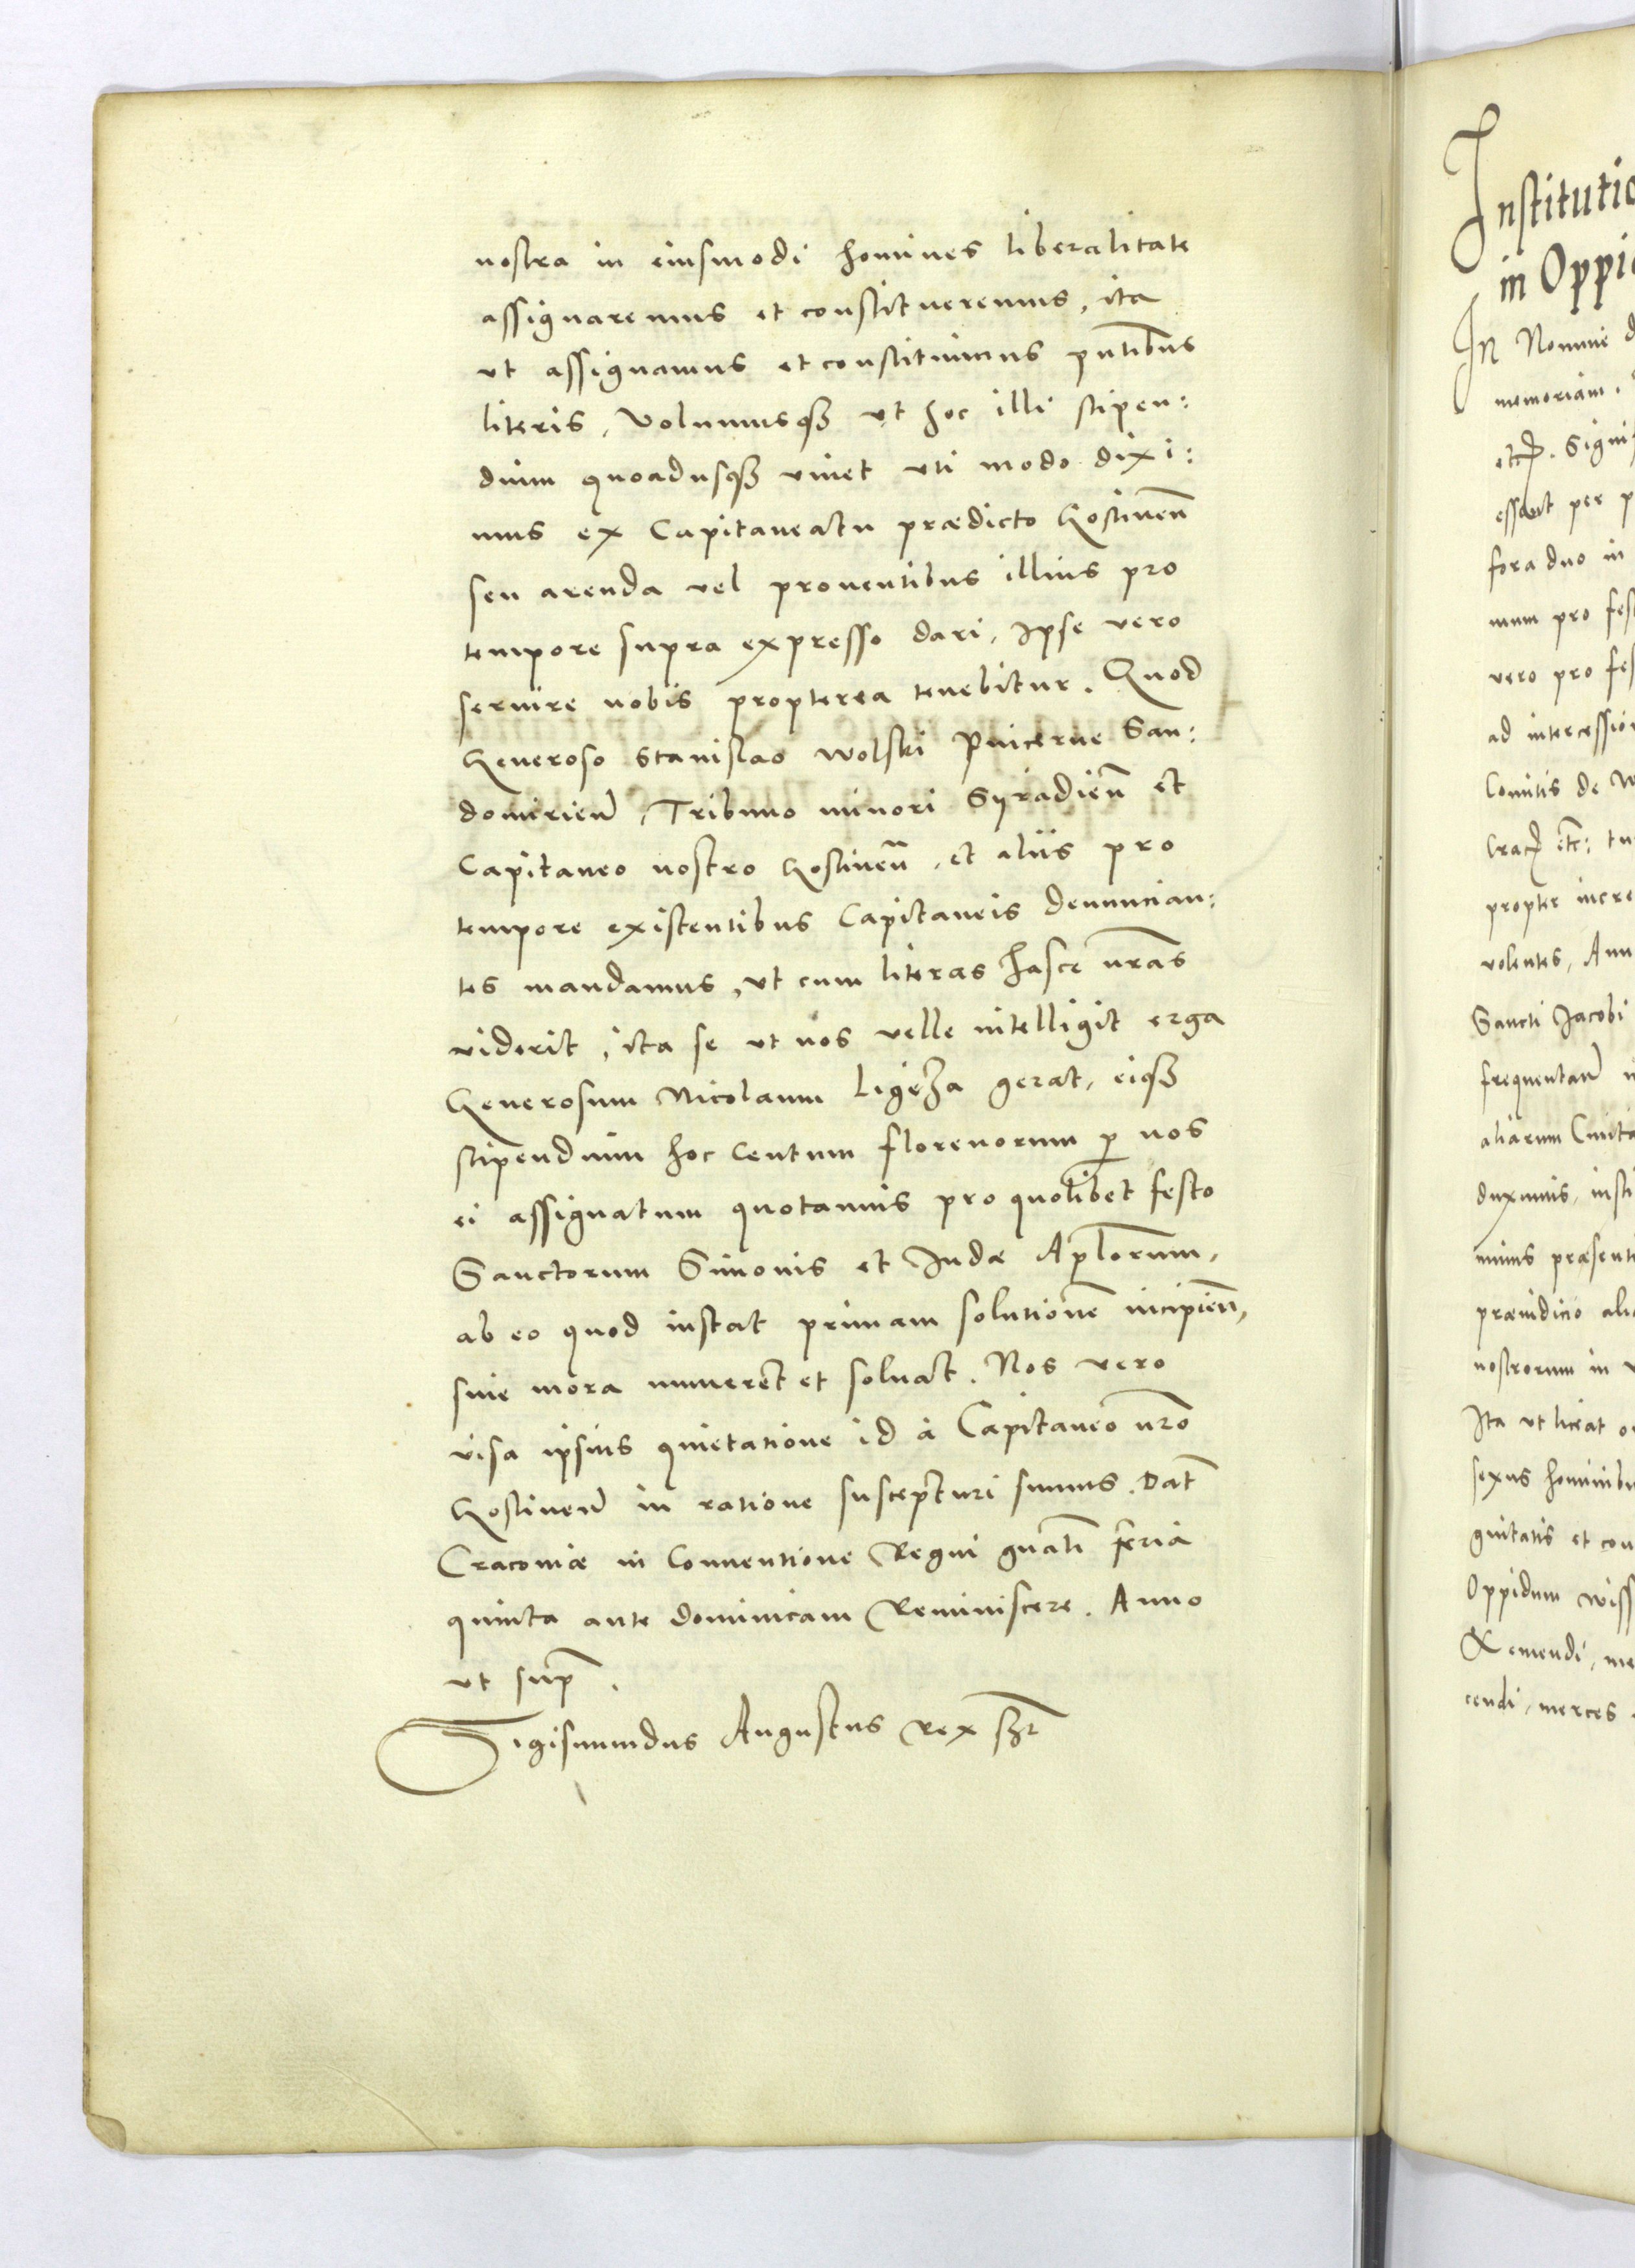 nostra in eiusmodi homines liberalitate
assignaremus et constitueremus, ita
ut assignamus et constituimus pñtibus
literis, volumusq3 ut hoc illi stipen:
dium quoadusq3 vivet uti modo dixi:
mus ex Capitaneatu prædicto Gostineñ
seu arenda vel proventibus illius pro
tempore supra expresso dari, Ipse vero
servire nobis propterea tenebitur. Quod
Generoso Stanislao Wolski Pincerne San:
domirieñ, Tribuno minori Syradieñ et
Capitaneo nostro Gostineñ, et aliis pro
tempore existentibus Capitaneis denuncian:
tes mandamus, ut cum literas hasce nr̃as
viderit, ita se ut nos velle intelligit erga
Generosum Nicolaum Ligęza gerat, eiq3
stipendium hoc Centum florenorum p nos
ei assignatum quotannis pro quolibet festo
Sanctorum Simonis et Iudæ Apl̃orum,
ab eo quod instat primam solutionẽ incipieñ,
sine mora numeret et solvat. Nos vero
visa ipsius quietatione id à Capitaneo nr̃o
Gostineñ in ratione suscepturi sumus. Dat̃
Cracoviæ in Conventione Regni gñali feria
quinta ante dominicam Reminiscere. Anno
ut sup̃.
Sigismundus Augustus Rex s̃st
Institutio
in Oppi
In Nomine d
memoriam.
etc. Signi
essent per p
fora duo in
num pro fes
vero pro fes
ad intercession
Comitis de W
Crac etc: tu
propter incre
volentes, Ann
Sancti Jacobi
frequentañ
aliarum Civita
duximus, insti
mimus præsenti
præiudicio ali
nostrorum in v
Ita ut liceat o
sexus hominibu
gnitatis et con
Oppidum Wiss
& emendi, me
cendi, merces